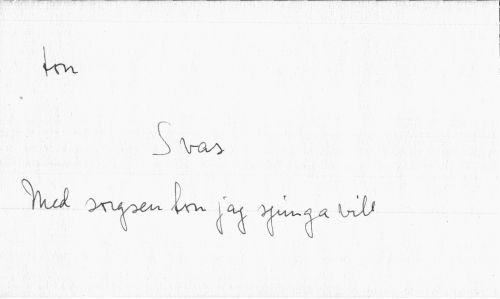 ton
Svas
Med sorgsen ton jag sjunga vill